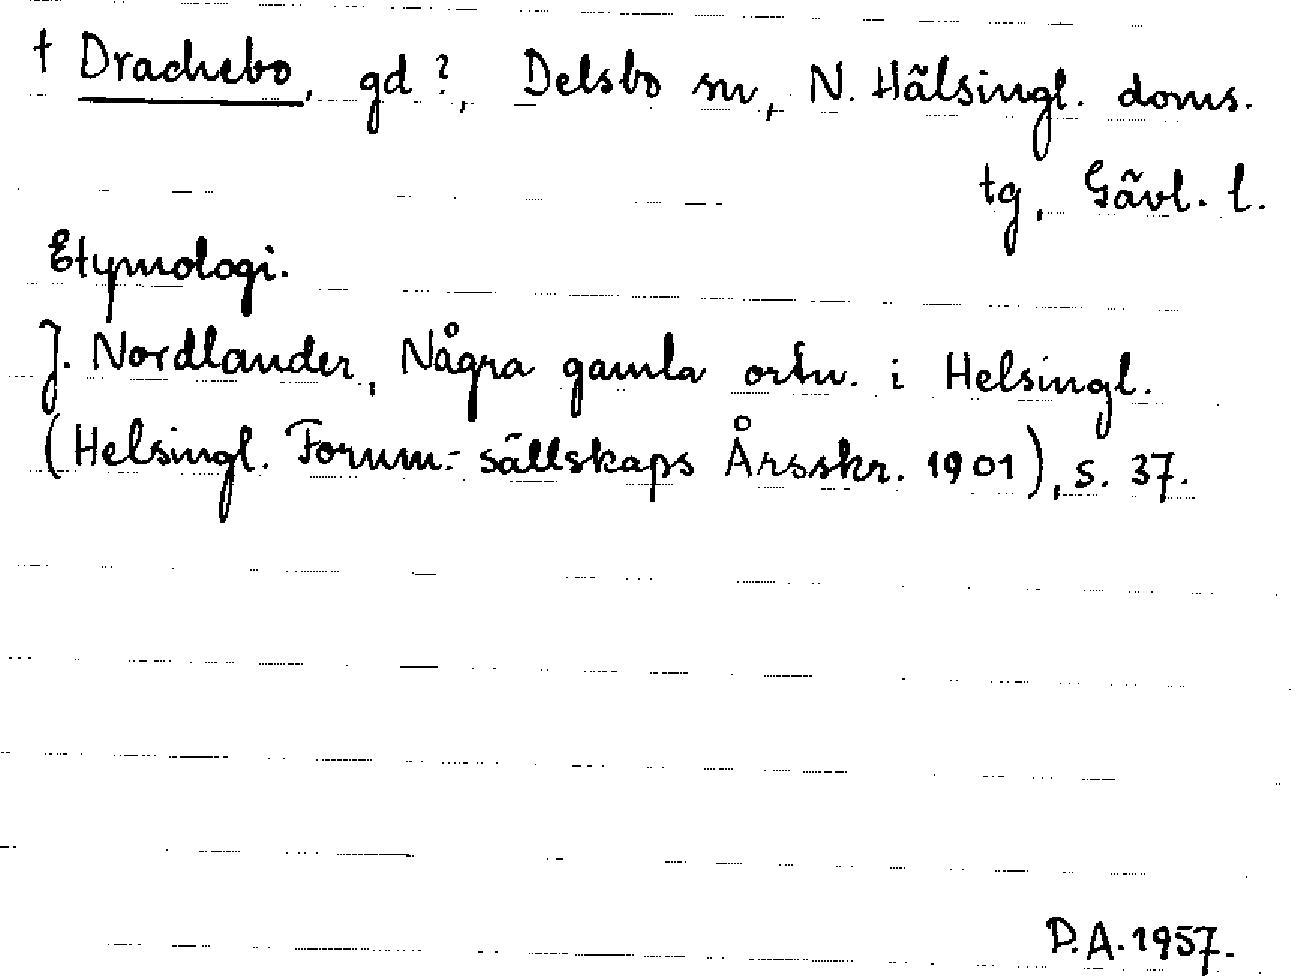 † Drachebo, gd?, Delsbo sn, N. Hälsingl. doms.
tg, Gävl. l.
Etymologi.
J. Nordlander, Några gamla ortn. i Helsingl.
(Helsingl. Fornm.-sällskaps Årsskr. 1901), s. 37.
D.A. 1957.